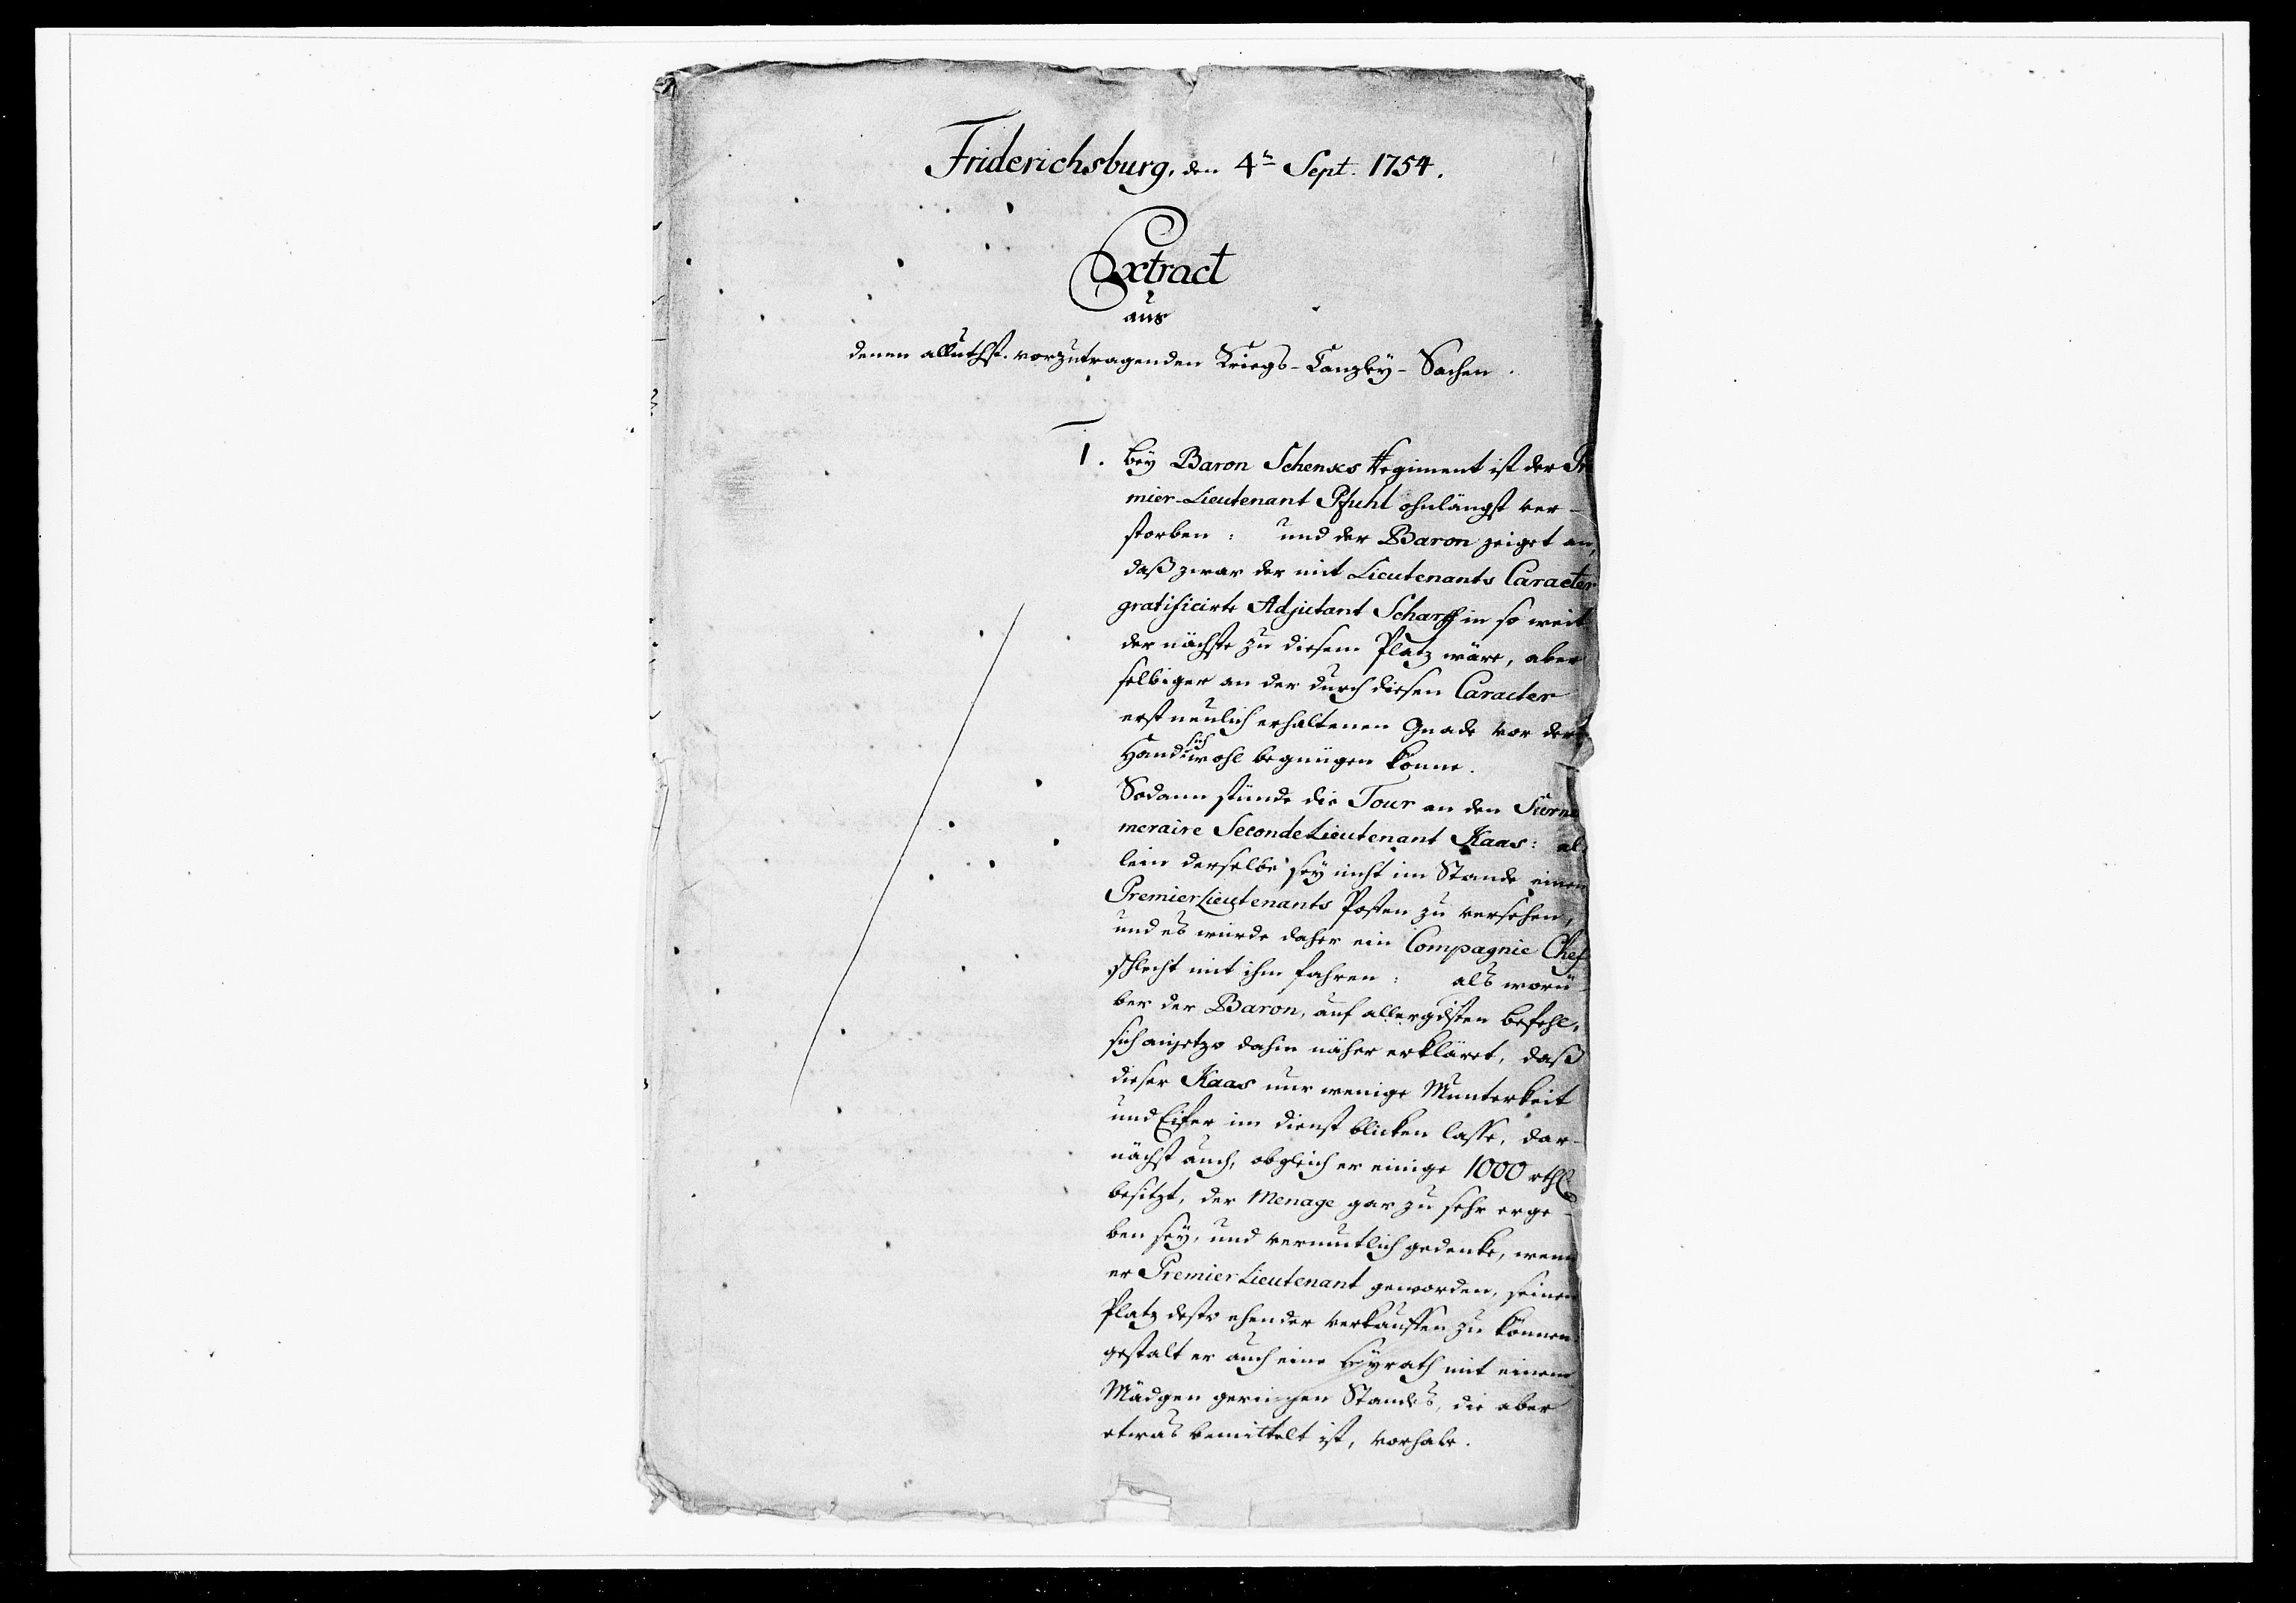 Friderichsburg, den 4ⁿ Sept. 1754.
Extract
aus
denen alluthst. vorzutragenden Kriegs-Canzley-Sachen.
1. Bey Baron Schencks Regiment ist der Pre
mier-Lieutenant Pfuhl ohnlängst ver-
storben: und der Baron zeiget an,
daß zwar der mit Lieutenants Caracter
gratificirte Adjutant Scharff in so weit
der nächste zu diesem Platz wäre, aber
selbiger an der durch diesen Caracter
erst neulich erhaltenen Gnade vor der
Hand sich wohl begnügen könne.
Sodann stünde die Tour an den Surnu
meraire Seconde Lieutenant Kaas: al-
lein derselbe sey nicht im Stande einen
Premier Lieutenants Posten zu versehen,
und es würde daher ein Compagnie Chef
schlecht mit ihm fahren: als worü-
ber der Baron, auf allergdsten Befehl,
sich anjetzo dahin näher erkläret, daß
dieser Kaas nur wenige Munterkeit
und Eifer im Dienst blicken lasse, dar-
nächst auch, obgleich er einige 1000 rthl
besitzt, der Menage gar zu sehr erge-
ben sey, und vermutlich gedenke, wenn
er Premier Lieutenant geworden, seinen
Platz desto ehender verkauffen zu können
gestalt er auch eine Heyrath mit einem
Mädgen geringen Standes, die aber
etwas bemittelt ist, vorhabe.